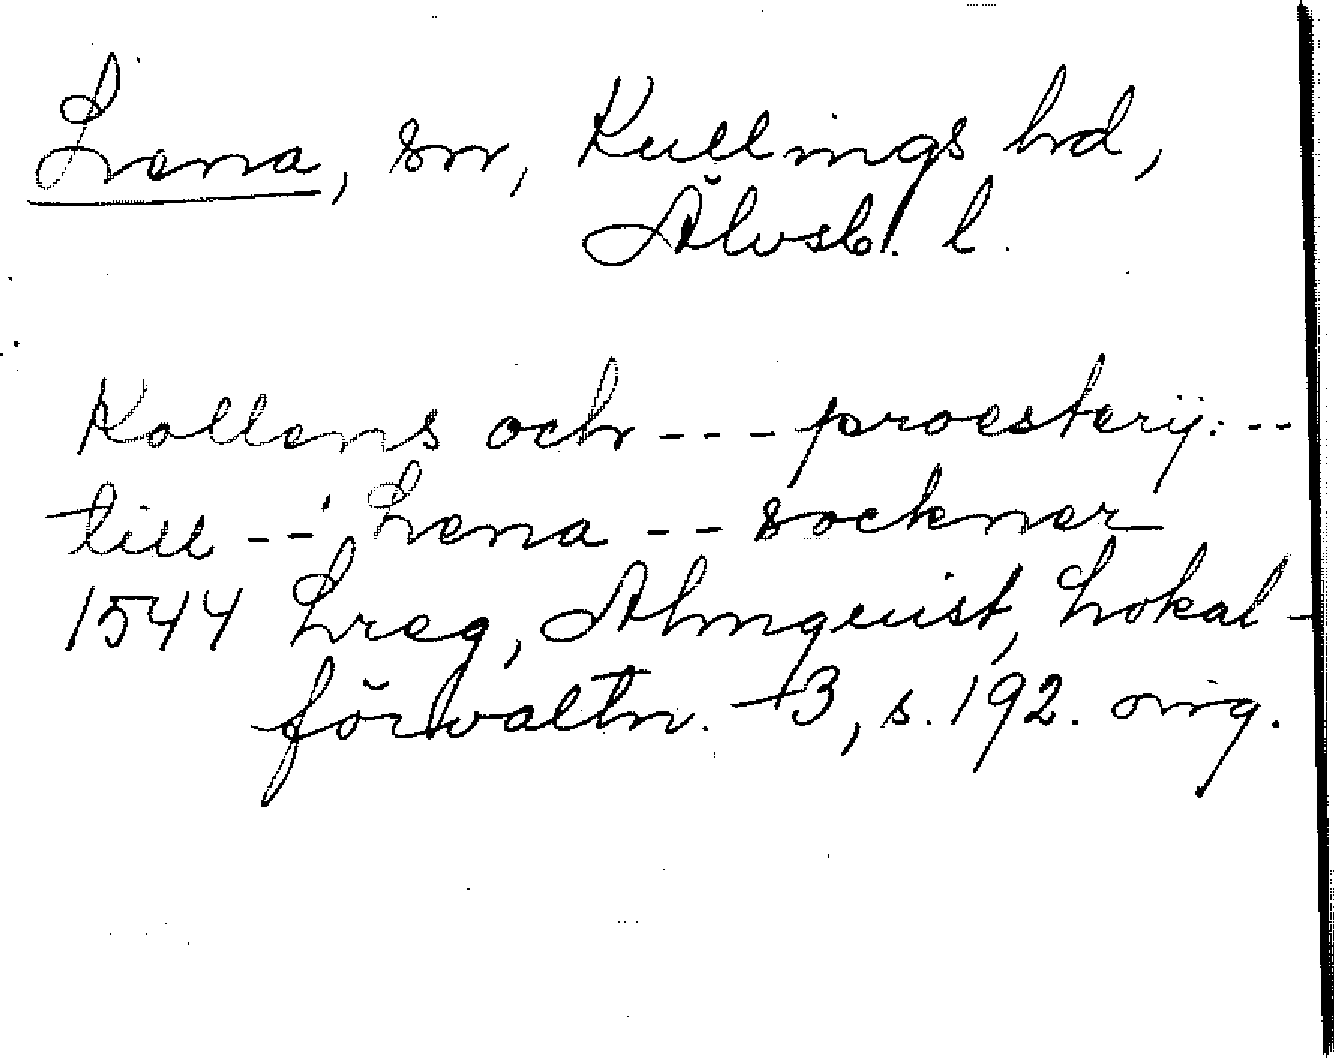 Lena, sn, Kullings hd,
Älvsb. l.
Kollens och --- proesterij: --
till -- Lena -- socknar
1544 Lreg, Almquist, Lokal-
förvaltn. 3, s. 192. orig.